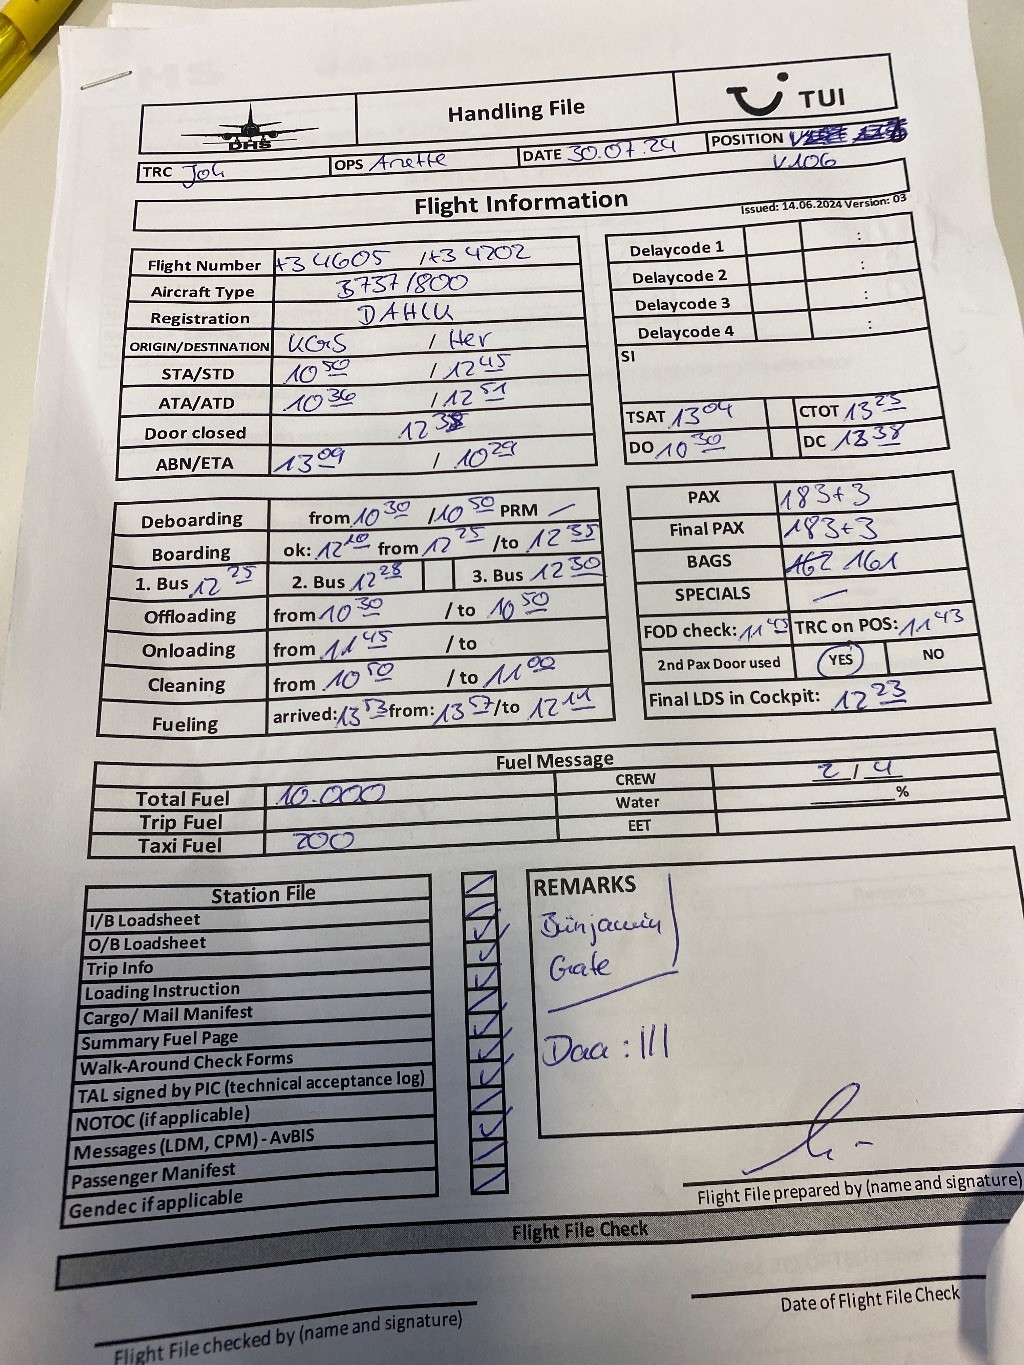 DHS
Handling File
TUI
TRC Joh OPS Anette DATE 30.07.24 POSITION
V106
Flight Information
Issued: 14.06.2024 Version: 03
Flight Number X3 4605 / X3 4202
Aircraft Type B737/800
Registration DAHLK
ORIGIN/DESTINATION KGS / Her
STA/STD 10 50 / 12 45
ATA/ATD 10 36 / 12 51
Door closed 12 38
ABN/ETA 13 09 / 10 29
Delaycode 1 :
Delaycode 2 :
Delaycode 3 :
Delaycode 4 :
SI
TSAT 13 04 CTOT 13 25
DO 10 30 DC 12 38
Deboarding from 10 30 / 10 50 PRM —
Boarding ok: 12 20 from 12 25 /to 12 35
1. Bus 12 25 2. Bus 12 28 3. Bus 12 30
Offloading from 10 30 / to 10 50
Onloading from 11 45 / to
Cleaning from 10 50 / to 11 00
Fueling arrived: 13 53 from: 13 57 /to 12 11
PAX 183+3
Final PAX 183+3
BAGS 162 161
SPECIALS —
FOD check: 11 43 TRC on POS: 11 43
2nd Pax Door used YES NO
Final LDS in Cockpit: 12 23
Fuel Message
Total Fuel 10.000 CREW 2 / 4
Trip Fuel Water %
Taxi Fuel 200 EET
Station File
I/B Loadsheet
O/B Loadsheet
Trip Info
Loading Instruction
Cargo/ Mail Manifest
Summary Fuel Page
Walk-Around Check Forms
TAL signed by PIC (technical acceptance log)
NOTOC (if applicable)
Messages (LDM, CPM) - AvBIS
Passenger Manifest
Gendec if applicable
REMARKS
Binjamin
Gate
Daa : III
Flight File prepared by (name and signature)
Flight File Check
Flight File checked by (name and signature)
Date of Flight File Check